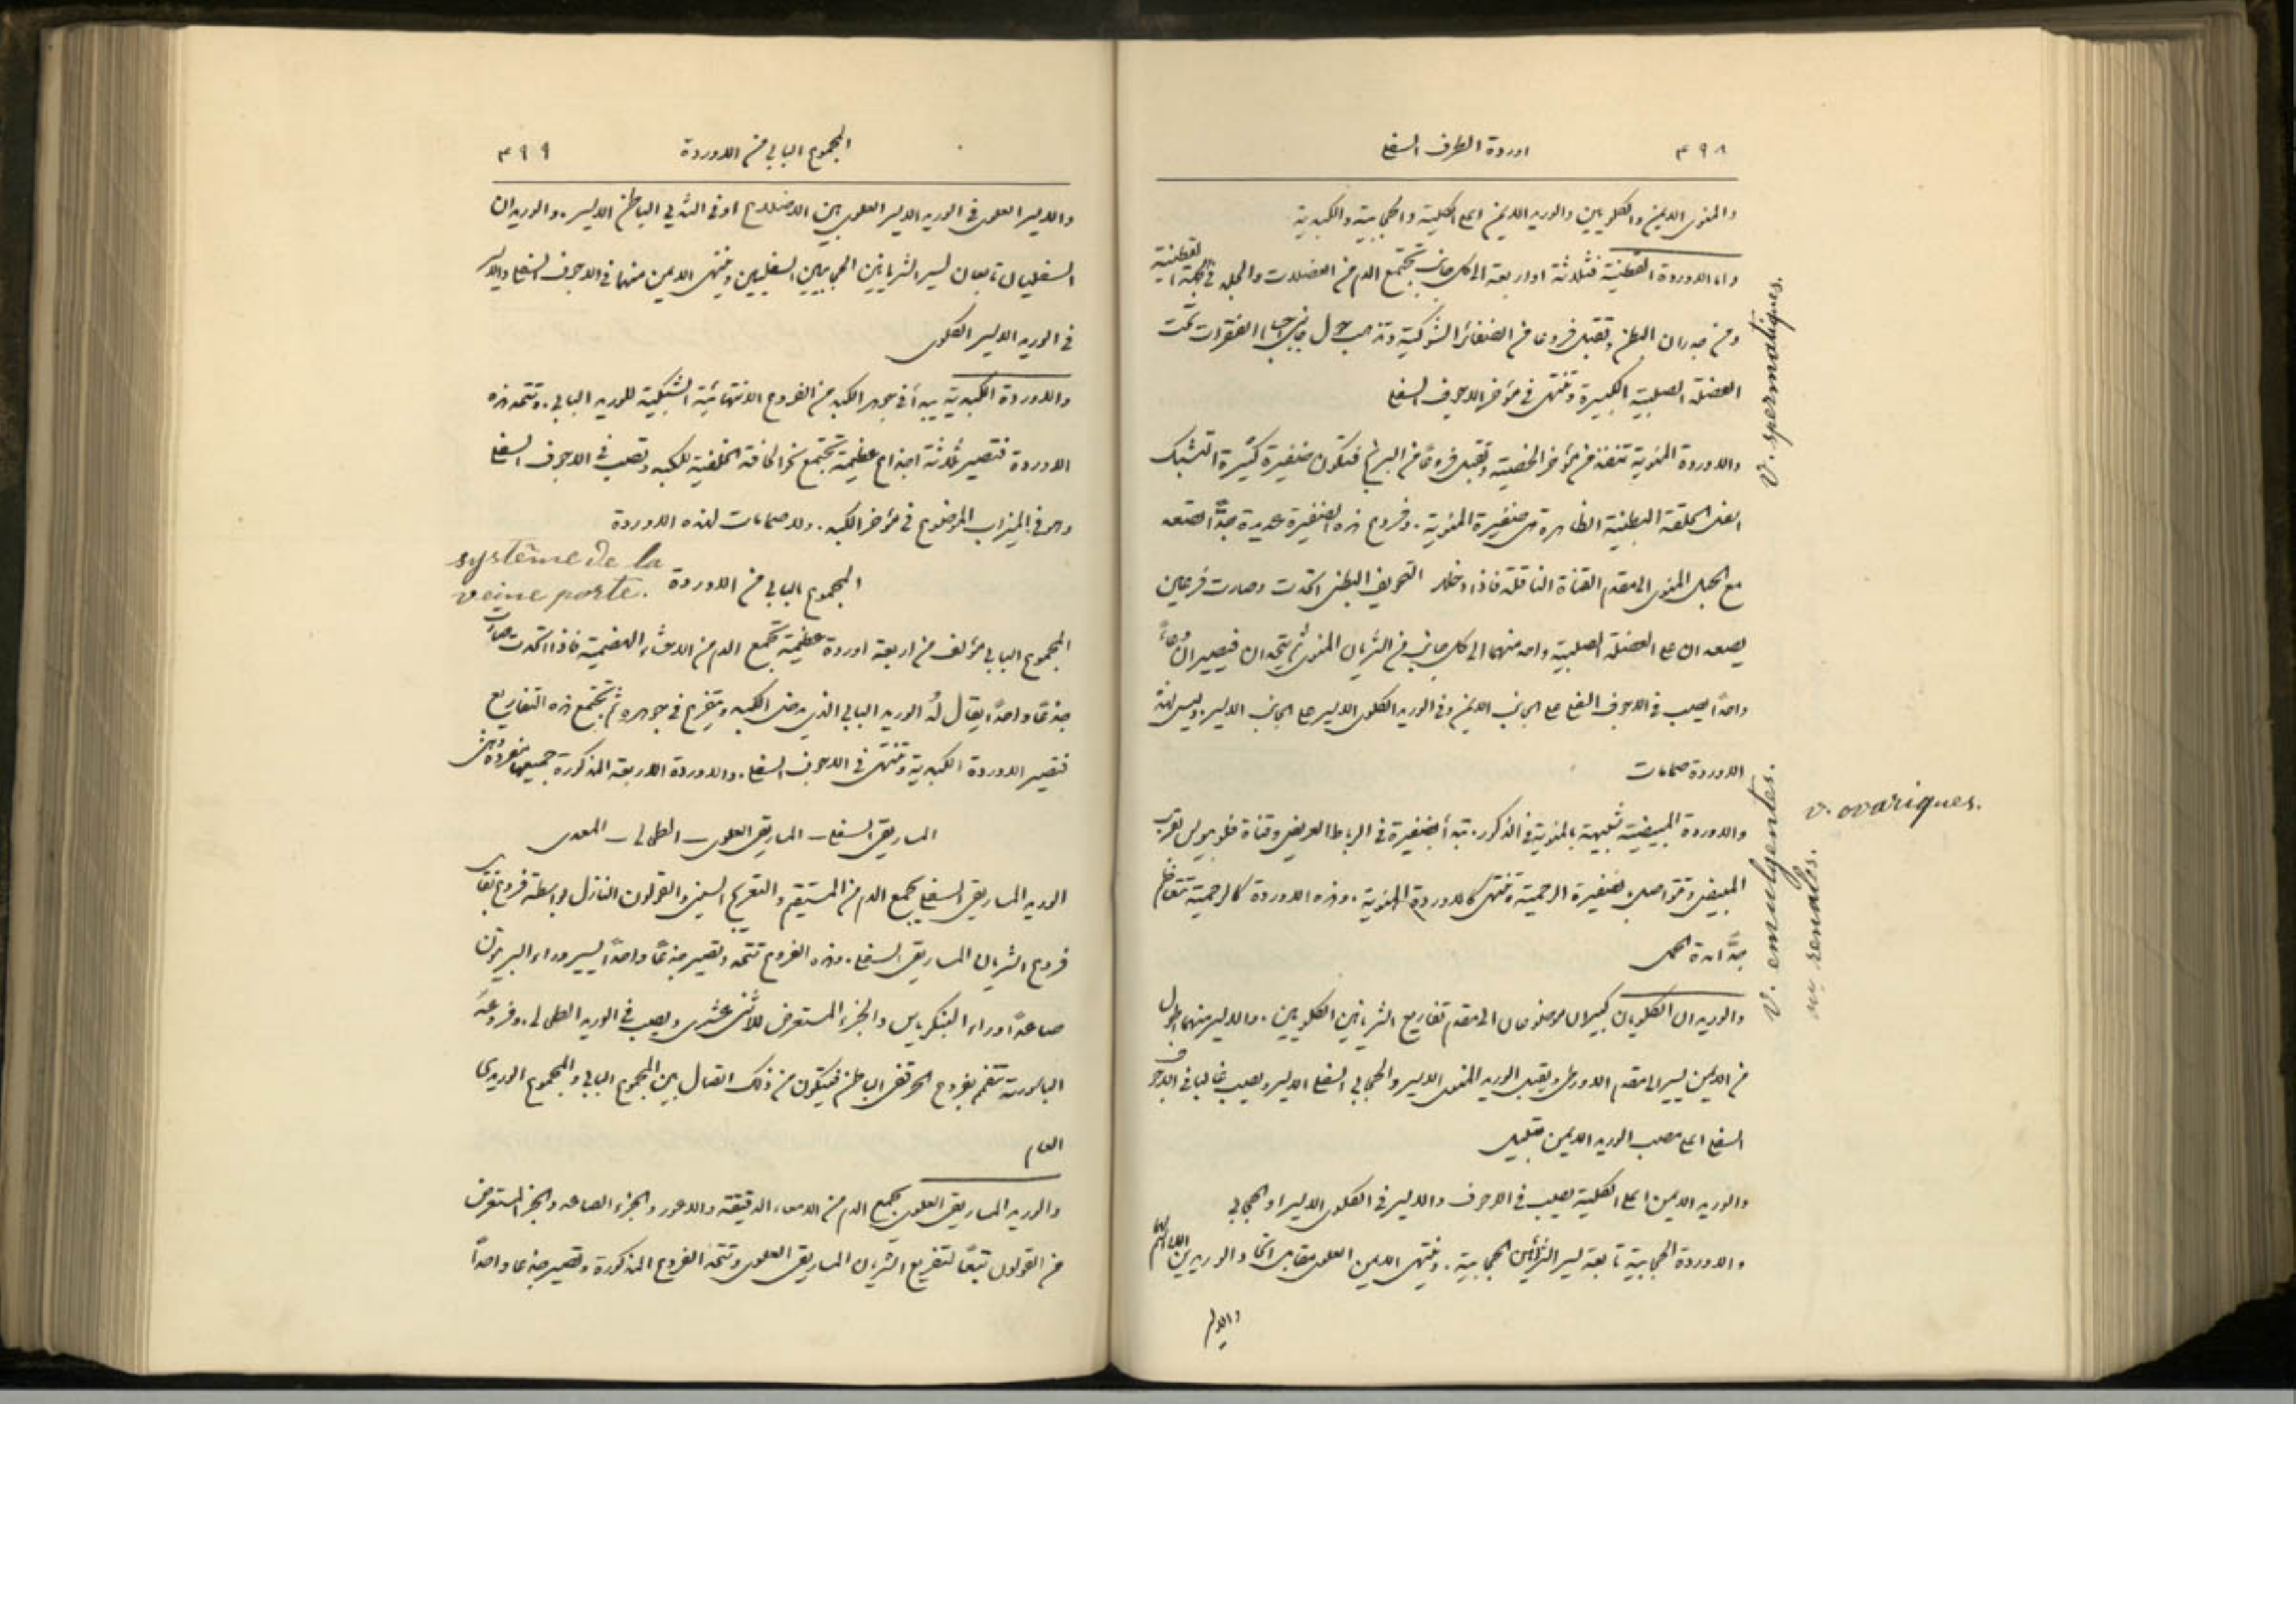 ٣٩٨ اوردة الطرف السفلي
والمنوي الايمن والكلويين والوريد الايمن اعلى الكلية والحجابية والكبدية
واما الاوردة القطنية فثلاثة او اربعة الى كل جانب تجتمع الدم من العضلات والجلد في الجهة القطنية
ومن جدران البطن وتقبل فروعا من الضفائر الشوكية وتذهب حول جانبي اجسام الفقرات تحت
العضلة الصلبية الكبيرة وتنتهي في مؤخر الاجوف السفلي
والاوردة المنوية تنفذ من مؤخر الخصية وتقبل فروعًا من البربخ فتكون ضفيرة كثيرة التشبك
الحلقة البطنية الظاهرة هي ضفيرة المنوية. وفروع هذه الضفيرة عديدة جدًّا تصعد
مع الحبل المنوي الى مقدم القناة الناقلة فاذا دخلت التجويف البطني اتحدت وصارت فرعين
يصعدان على العضلة الصلبية واحد منهما الى كل جانب من الشريان المنوي ثم يتحدان فيصيران وعاءً
واحدًا يصب في الاجوف السفلي على الجانب الايمن وفي الوريد الكلوي الايسر على الجانب الايسر. وليس لهذه
الاوردة صمامات
والاوردة المبيضية شبيهة بالمنوية في الذكور. تبدأ بضفيرة في الرباط العريض وقناة فلوبيوس بقرب
المبيض وتتواصل بضفيرة الرحمية وتنتهي كالاوردة المنوية. وهذه الاوردة كالرحمية تتعاظم
جدًّا مدة الحمل
والوريدان الكلويان كبيران موضوعان الى مقدم تفاريع الشريانين الكلويين. والايسر منهما اطول
من الايمن يسير الى مقدم الاورطى ويقبل الوريد المنوي الايسر والحجابي السفلي الايسر ويصب غالبا في الاجوف
السفلي اعلى مصب الوريد الايمن بقليل
والوريد الايمن اعلى الكلية يصب في الاجوف والايسر في الكلوي الايسر او الحجابي
والاوردة الحجابية تابعة لسير الشرائين الحجابية. وينتهي الايمن العلوي مقابل اتحاد الوريدين
والايسر
v. spermatiques.
v. ovariques.
v. emulgentes.
renales.
المجموع البابي من الاوردة ٣٩٩
والايسر العلوي في الوريد الايسر العلوي بين الاضلاع او في الثديي الباطن الايسر. والوريدان
السفليان تابعان لسير الشريانين الحجابيين السفليين وينتهي الايمن منهما في الاجوف السفلي والايسر
في الوريد الايسر الكلوي
والاوردة الكبدية تبدأ في جوهر الكبد من الفروع الانتهائية الشبكية للوريد البابي. وتتحد هذه
الاوردة فتصير ثلاثة اجذاع عظيمة تجتمع نحو الحافة الخلفية للكبد وتصب في الاجوف السفلي
وهو في الميزاب الموضوع في مؤخر الكبد. ولا صمامات لهذه الاوردة
المجموع البابي من الاوردة
système de la
veine porte.
المجموع البابي مؤلف من اربعة اوردة عظيمة تجمع الدم من الاحشاء الهضمية فاذا اتحدت صارت
جذعًا واحدًا يقال لهُ الوريد البابي الذي يدخل الكبد ويتفرع في جوهره ثم تجتمع هذه التفاريع
فتصير الاوردة الكبدية وتنتهي في الاجوف السفلي. والاوردة الاربعة المذكورة جميعها مفردة وهي
الماريقي السفلي – الماريقي العلوي – الطحالي – المعدي
الوريد الماريقي السفلي يجمع الدم من المستقيم والتعريج السيني والقولون النازل بواسطة فروع تقابل
فروع الشريان الماريقي السفلي. وهذه الفروع تتحد وتصير جذعًا واحدًا يسير وراء البريتون
صاعدًا وراء البنكرياس والجزء المستعرض للاثني عشري ويصب في الوريد الطحالي. وفروعهُ
الباسورية تتفمم بفروع الحرقفي الباطن فيتكون من ذلك اتصال بين المجموع البابي والمجموع الوريدي
العام
والوريد الماريقي العلوي يجمع الدم من الامعاء الدقيقة والاعور والجزء الصاعد والجزء المستعرض
من القولون تبعًا لتفريع الشريان الماريقي العلوي وتتحد الفروع المذكورة وتصير جذعا واحدًا